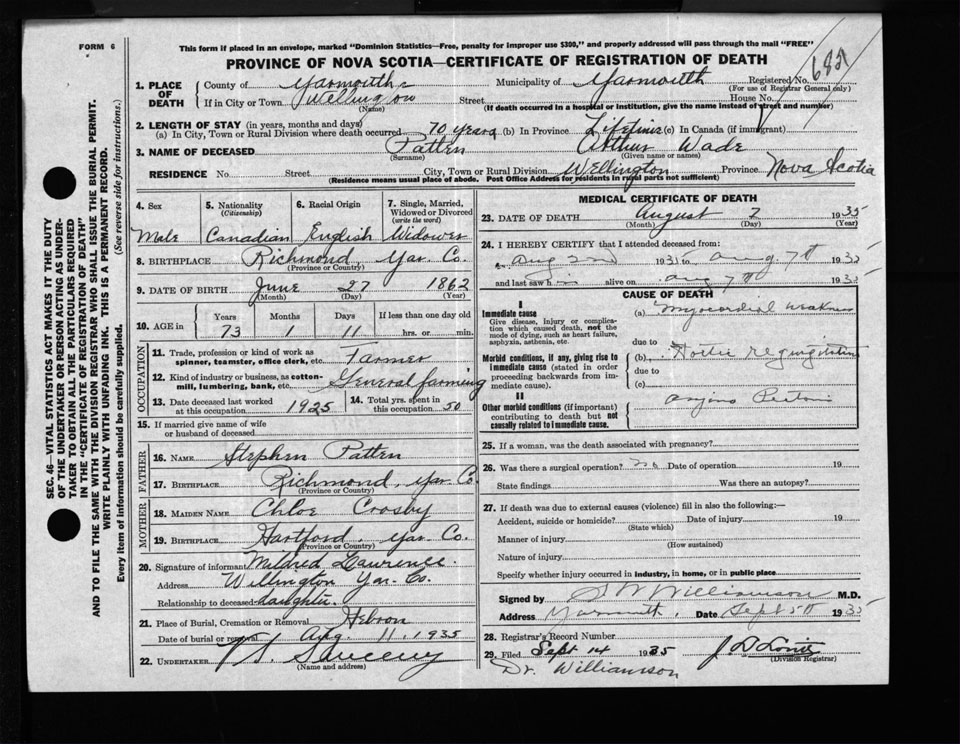 FORM 6
This form if placed in an envelope, marked "Dominion Statistics—Free, penalty for improper use $300," and properly addressed will pass through the mail "FREE"
PROVINCE OF NOVA SCOTIA—CERTIFICATE OF REGISTRATION OF DEATH
682
1. PLACE OF DEATH
County of Yarmouth Municipality of Yarmouth Registered No.
(For use of Registrar General only)
If in City or Town Wellington Street House No.
(Name) (If death occurred in a hospital or institution, give the name instead of street and number)
2. LENGTH OF STAY (in years, months and days)
(a) In City, Town or Rural Division where death occurred 70 years (b) In Province Lifetime (c) In Canada (if immigrant)
3. NAME OF DECEASED Patten Arthur Wade
(Surname) (Given name or names)
RESIDENCE No. Street City, Town or Rural Division Wellington Province Nova Scotia
(Residence means usual place of abode. Post Office Address for residents in rural parts not sufficient)
4. Sex 5. Nationality (Citizenship) 6. Racial Origin 7. Single, Married, Widowed or Divorced (write the word)
Male Canadian English Widower
8. BIRTHPLACE Richmond, Yar. Co.
(Province or Country)
9. DATE OF BIRTH June 27 1862
(Month) (Day) (Year)
10. AGE in Years Months Days If less than one day old
73 1 11 hrs. or min.
OCCUPATION
11. Trade, profession or kind of work as spinner, teamster, office clerk, etc. Farmer
12. Kind of industry or business, as cotton-mill, lumbering, bank, etc. General farming
13. Date deceased last worked at this occupation 1925 14. Total yrs. spent in this occupation 50
15. If married give name of wife or husband of deceased
FATHER
16. NAME Stephen Patten
17. BIRTHPLACE Richmond, Yar. Co.
(Province or Country)
MOTHER
18. MAIDEN NAME Chloe Crosby
19. BIRTHPLACE Hartford, Yar. Co.
(Province or Country)
20. Signature of informant Mildred Lawrence.
Address Wellington Yar. Co.
Relationship to deceased daughter
21. Place of Burial, Cremation or Removal Hebron
Date of burial or removal Aug. 11, 1935
22. UNDERTAKER
(Name and address)
MEDICAL CERTIFICATE OF DEATH
23. DATE OF DEATH August 7 1935
(Month) (Day) (Year)
24. I HEREBY CERTIFY that I attended deceased from:
Aug 1931 to Aug. 7th 1935
and last saw h alive on Aug 7th 1935
CAUSE OF DEATH
I
Immediate cause
Give disease, injury or complication which caused death, not the mode of dying, such as heart failure, asphyxia, asthenia, etc.
(a) Myocardial weakness
due to
Morbid conditions, if any, giving rise to immediate cause (stated in order proceeding backwards from immediate cause).
(b) regurgitation
due to
(c)
II
Other morbid conditions (if important) contributing to death but not causally related to immediate cause.
25. If a woman, was the death associated with pregnancy?
26. Was there a surgical operation? no Date of operation 19
State findings Was there an autopsy?
27. If death was due to external causes (violence) fill in also the following:—
Accident, suicide or homicide? Date of injury 19
(State which)
Manner of injury
(How sustained)
Nature of injury
Specify whether injury occurred in industry, in home, or in public place
Signed by Williamson M.D.
Address Yarmouth, Date Sept 5th 1935
28. Registrar's Record Number
29. Filed Sept 14 1935
(Division Registrar)
Dr. Williamson
SEC. 46—VITAL STATISTICS ACT MAKES IT THE DUTY
OF THE UNDERTAKER OR PERSON ACTING AS UNDER-
TAKER TO OBTAIN ALL THE PARTICULARS REQUIRED
IN THE "CERTIFICATE OF REGISTRATION OF DEATH"
AND TO FILE THE SAME WITH THE DIVISION REGISTRAR WHO SHALL ISSUE THE BURIAL PERMIT.
WRITE PLAINLY WITH UNFADING INK. THIS IS A PERMANENT RECORD.
Every item of information should be carefully supplied. (See reverse side for instructions.)